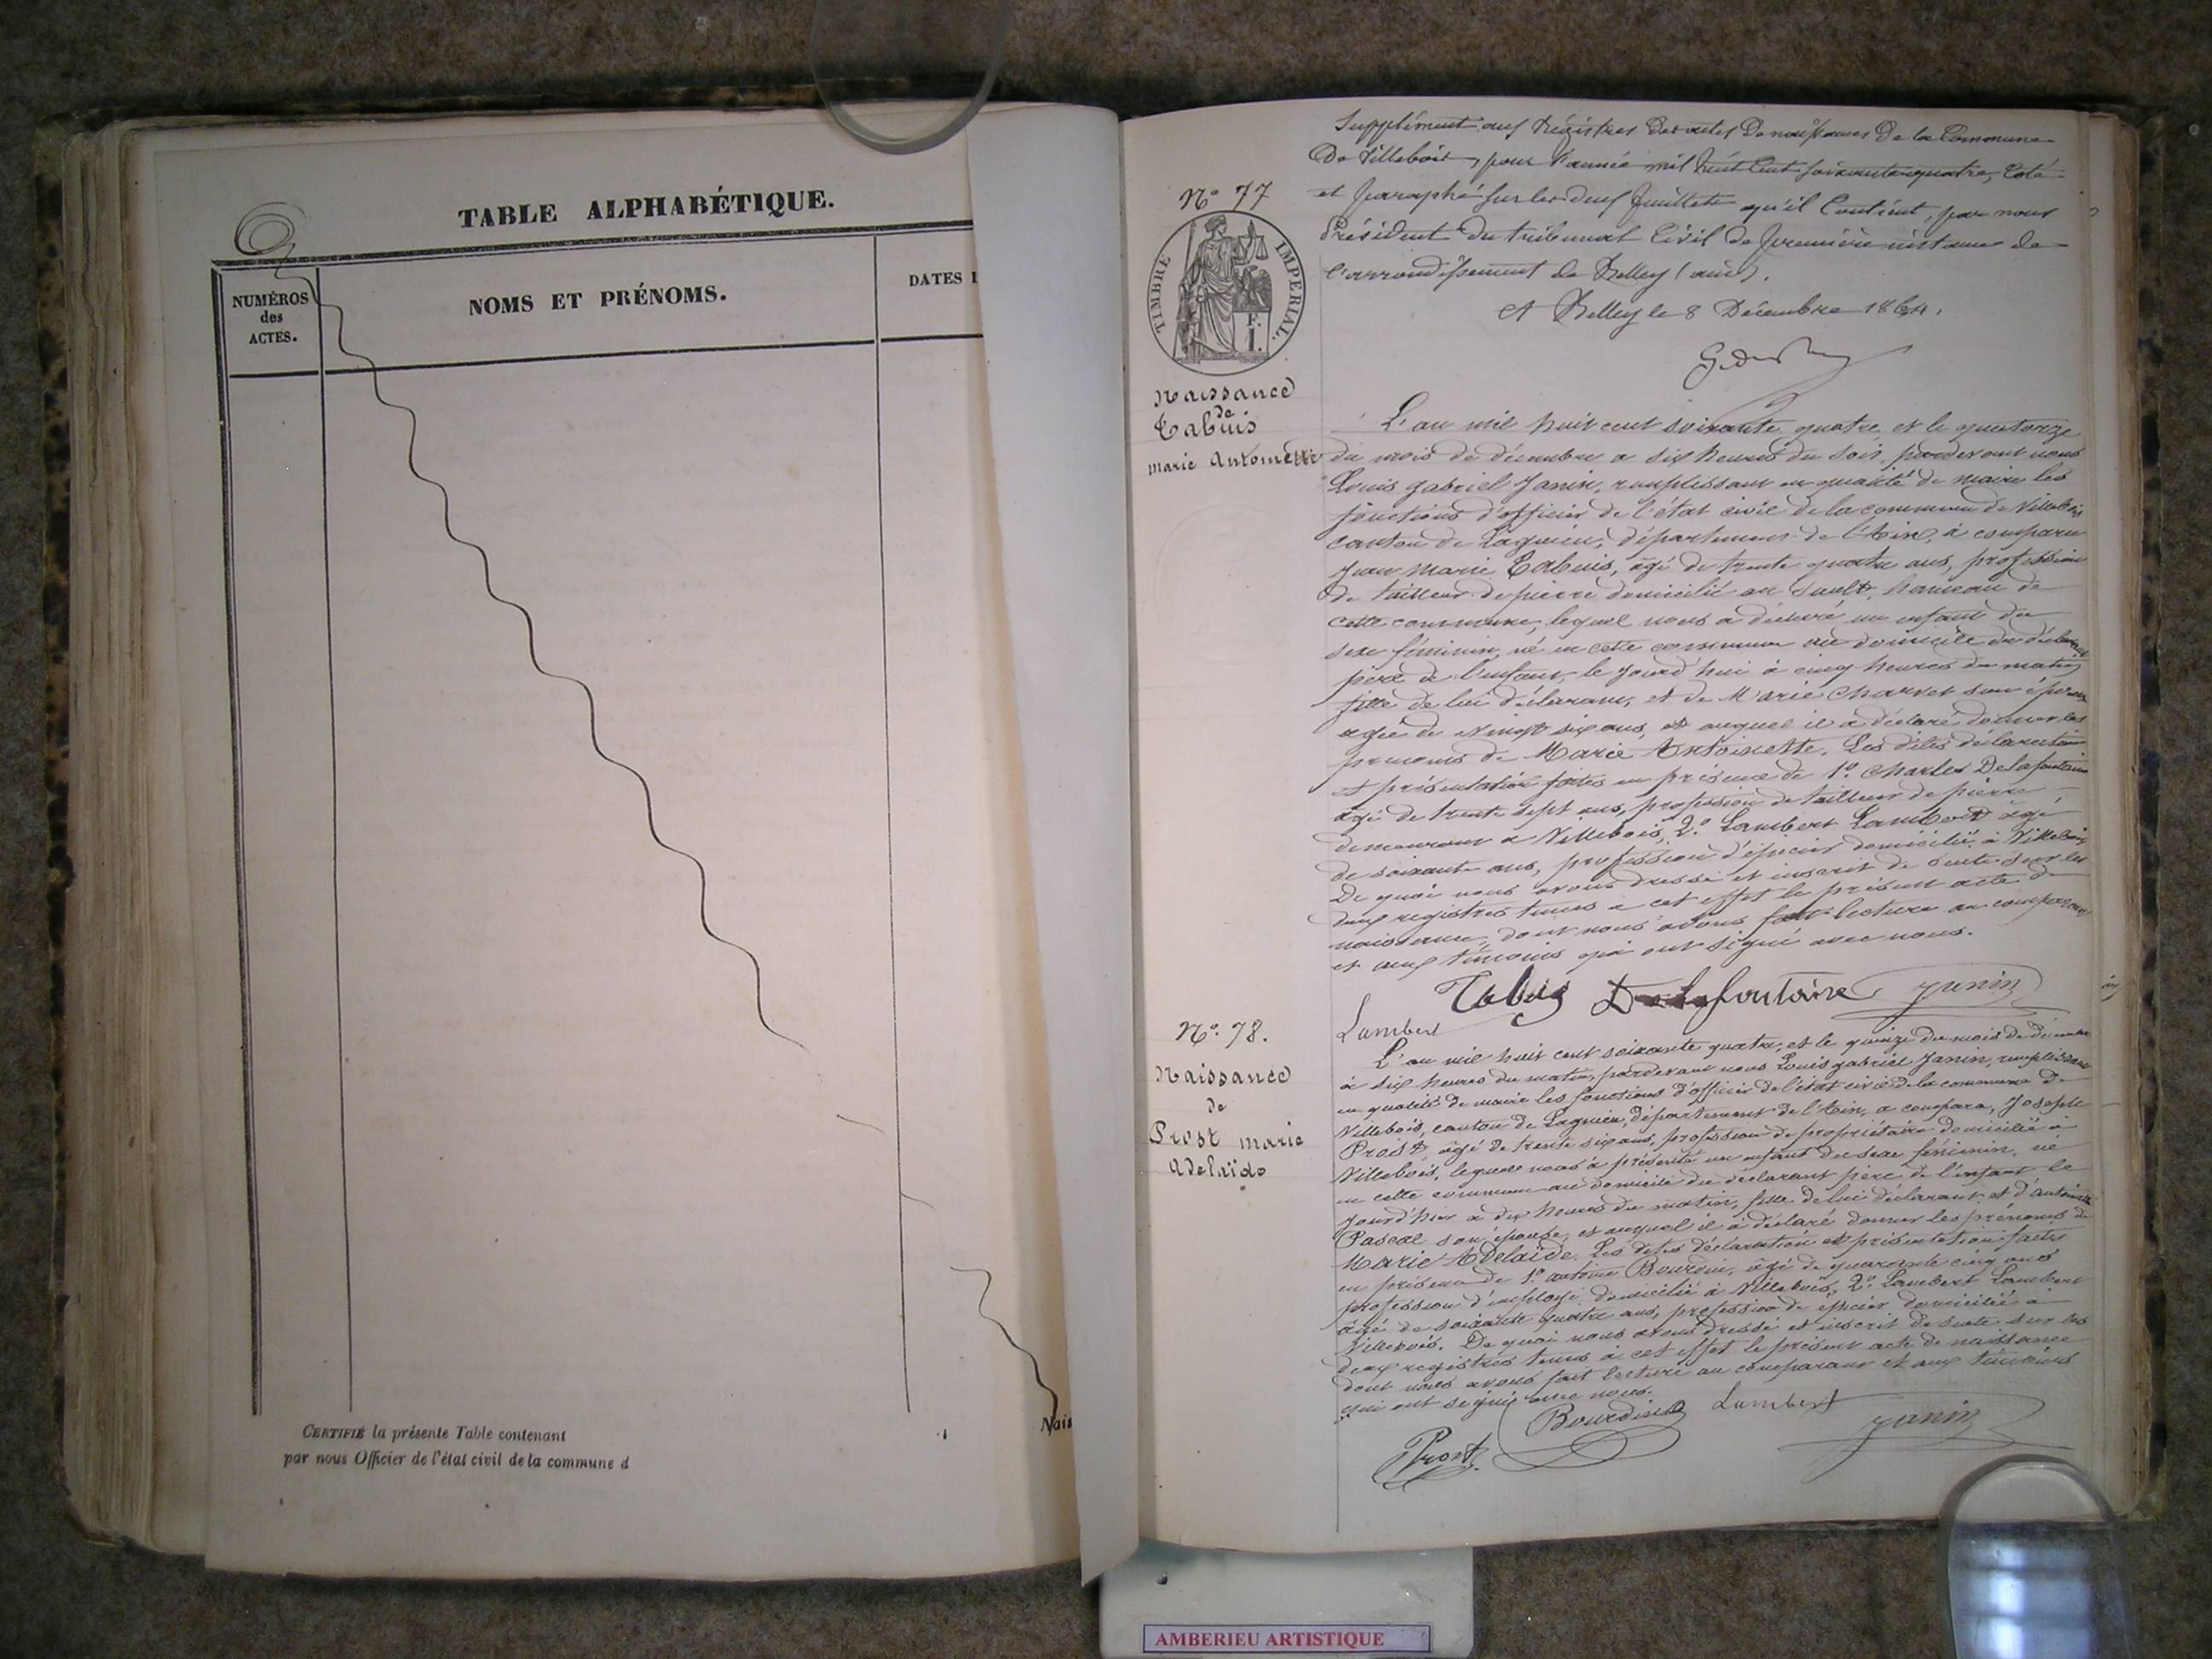 TABLE ALPHABÉTIQUE.
NUMÉROS
des
ACTES.
NOMS ET PRÉNOMS.
DATES
CERTIFIÉ la présente Table contenant
par nous Officier de l'état civil de la commune d
Nais
Supplément aux Régistres des actes de naissances de la Commune
de Villebois, pour l'année mil huit cent soixante quatre, Coté
et paraphé sur les deux feuillets qu'il Contient, par nous
Président du tribunal Civil de première instance de
l'arrondissement de Belley (ain).
A Belley le 8 Décembre 1864.
N° 77
TIMBRE IMPERIAL.
1 F.
Naissance
de
Tabuis
marie Antoinette
L'an mil huit cent soixante quatre et le quatorze
du mois de décembre a six heures du soir, pardevant nous
Louis gabriel Janin, remplissant en qualité de maire les
fonctions d'officier de l'état civil de la commune de Villebois
canton de Lagnieu, département de l'Ain, à comparu
Jean Marie Tabuis, âgé de trente quatre ans, profession
de tailleur de pierre domicilié au Sault, hameau de
cette commune, lequel nous a déclaré un enfant du
sexe féminin, né en cette commune au domicile du déclarant
père de l'enfant, le jourd'hui à cinq heures du matin
fille de lui déclarant, et de Marie Charvet son épouse
agée de vingt six ans, et auquel il a déclaré donner les
prénoms de Marie Antoinette. Les dites déclaration
et présentation faites en présence de 1° Charles Delafontaine
âgé de trente sept ans, profession de tailleur de pierre
demeurant a Villebois, 2° Lambert Lambert âgé
de soixante ans, profession d'épicier domicilié à Villebois
De quoi nous avons dressé et inscrit de suite sur les
deux registres tenus a cet effet le présent acte de
naissance, dont nous avons fait lecture au comparant
et aux témoins qui ont signé avec nous.
Tabuis Delafontaine Janin
Lambert
N° 78.
Naissance
de
Prost marie
Adelaïde
L'an mil huit cent soixante quatre, et le quinze du mois de décembre
à six heures du matin, pardevant nous Louis gabriel Janin, remplissant
en qualité de maire les fonctions d'officier de l'état civil de la commune de
Villebois, canton de Lagnieu, département de l'Ain, a comparu, Joseph
Prost, âgé de trente six ans, profession de propriétaire domicilié a
Villebois, lequel nous à présenté un enfant du sexe féminin, né
en cette commune au domicile du déclarant père de l'enfant le
jourd'hier a dix heures du matin, fille de lui déclarant et d'Antoinette
Pascal son épouse, et auquel il à déclaré donner les prénoms de
Marie Adelaïde. Les dites déclaration et présentation faites
en présence de 1° antoine Bourdin, âgé de quarante cinq ans
profession d'employé domicilié à Villebois, 2° Lambert Lambert
âgé de soixante quatre ans, profession de épicier domicilié à
Villebois. De quoi nous avons dressé et inscrit de suite sur les
deux registres tenus à cet effet le présent acte de naissance
dont nous avons fait lecture au comparant et aux témoins
qui ont signé avec nous.
Prost Bourdin Lambert Janin
AMBERIEU ARTISTIQUE